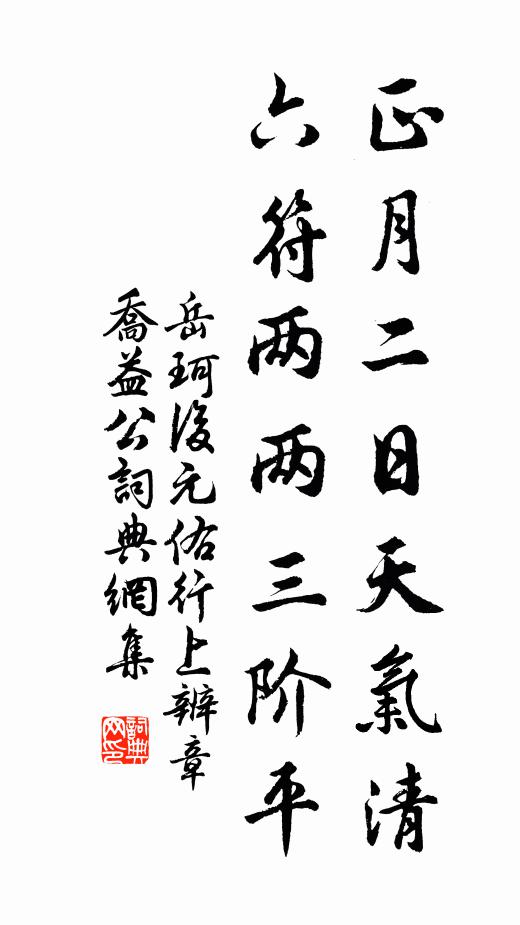 正月二日天氣清
六符两两三阶平
岳珂復元佑行上辨章
喬益公詞典網集
詞典
网印